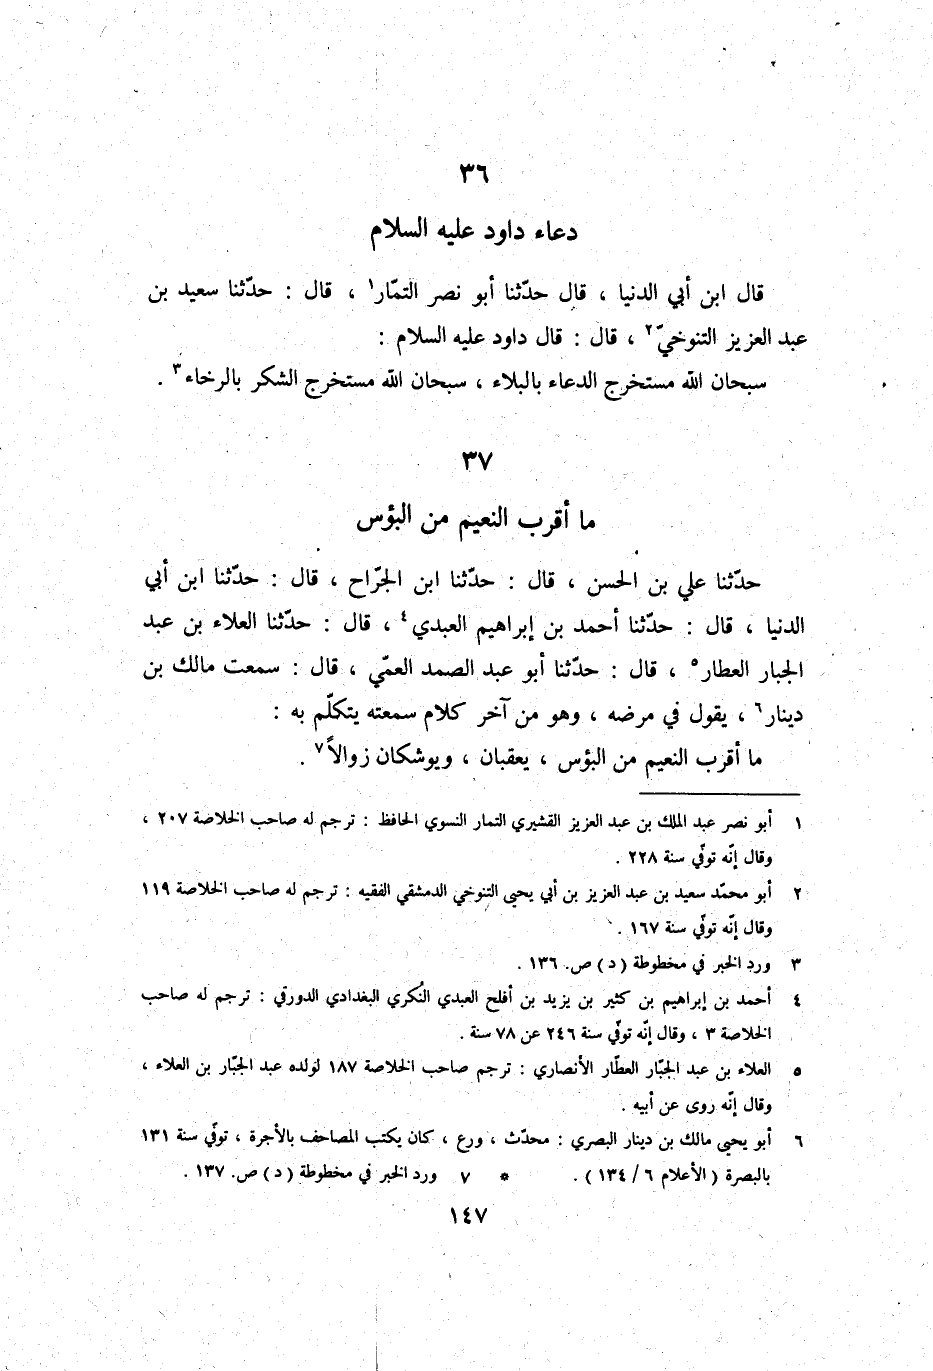 ٣٦
دعاء داود عليه السلام
قال ابن أبي الدنيا ، قال حدّثنا أبو نصر التمّار١ ، قال : حدّثنا سعيد بن
عبد العزيز التنوخيّ٢ ، قال : قال داود عليه السلام :
سبحان الله مستخرج الدعاء بالبلاء ، سبحان الله مستخرج الشكر بالرخاء٣ .
٣٧
ما أقرب النعيم من البؤس
حدّثنا علي بن الحسن ، قال : حدّثنا ابن الجرّاح ، قال : حدّثنا ابن أبي
الدنيا ، قال : حدّثنا أحمد بن إبراهيم العبدي٤ ، قال : حدّثنا العلاء بن عبد
الجبار العطار٥ ، قال : حدّثنا أبو عبد الصمد العمّي ، قال : سمعت مالك بن
دينار٦ ، يقول في مرضه ، وهو من آخر كلام سمعته يتكلّم به :
ما أقرب النعيم من البؤس ، يعقبان ، ويوشكان زوالاً٧ .
١ أبو نصر عبد الملك بن عبد العزيز القشيري التمار النسوي الحافظ : ترجم له صاحب الخلاصة ٢٠٧ ،
وقال إنّه توفّي سنة ٢٢٨ .
٢ أبو محمّد سعيد بن عبد العزيز بن أبي يحيى التنوخي الدمشقي الفقيه : ترجم له صاحب الخلاصة ١١٩
وقال إنّه توفّي سنة ١٦٧ .
٣ ورد الخبر في مخطوطة ( د ) ص. ١٣٦ .
٤ أحمد بن إبراهيم بن كثير بن يزيد بن أفلح العبدي النُكري البغدادي الدورقي : ترجم له صاحب
الخلاصة ٣ ، وقال إنّه توفّي سنة ٢٤٦ عن ٧٨ سنة .
٥ العلاء بن عبد الجبّار العطّار الأنصاري : ترجم صاحب الخلاصة ١٨٧ لولده عبد الجبّار بن العلاء ،
وقال إنّه روى عن أبيه .
٦ أبو يحيى مالك بن دينار البصري : محدّث ، ورع ، كان يكتب المصاحف بالأجرة ، توفّي سنة ١٣١
بالبصرة ( الأعلام ٦ / ١٣٤ ) . * ٧ ورد الخبر في مخطوطة ( د ) ص. ١٣٧ .
١٤٧